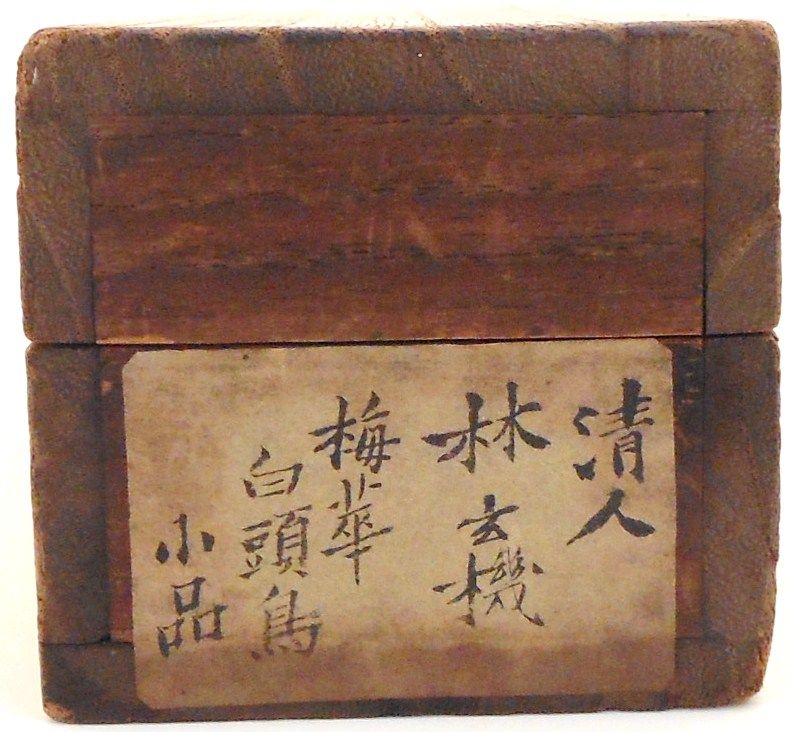 清人
林玄機
梅華
白頭鳥
小品